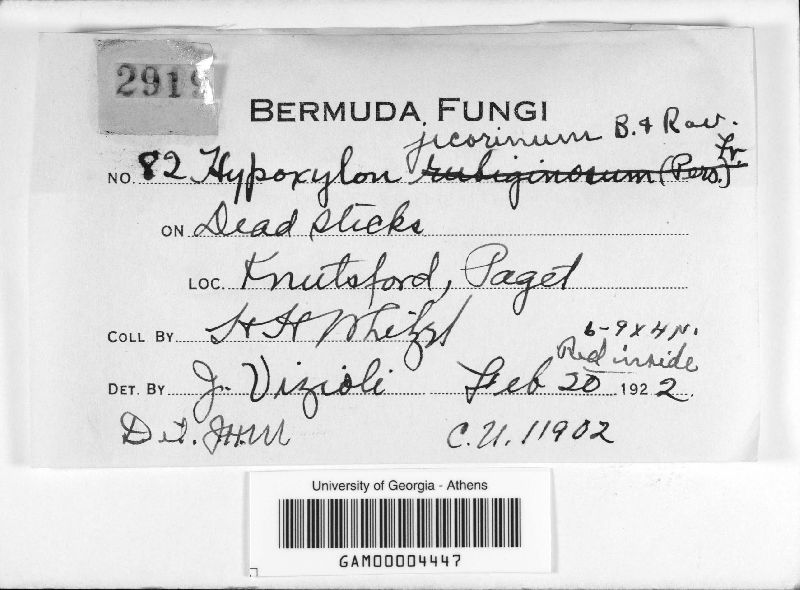 2919
BERMUDA FUNGI
jecorinum B. & Rav.
NO. 82 Hypoxylon rubiginosum (Pers.) Fr.
ON Dead sticks
LOC. Knutsford, Paget
COLL BY H H Whetzel
6-9 x 4 µ.
Red inside
DET. BY J. Vizioli Feb 20 1922
Det. JHM C.U. 11902
University of Georgia - Athens
GAM00004447